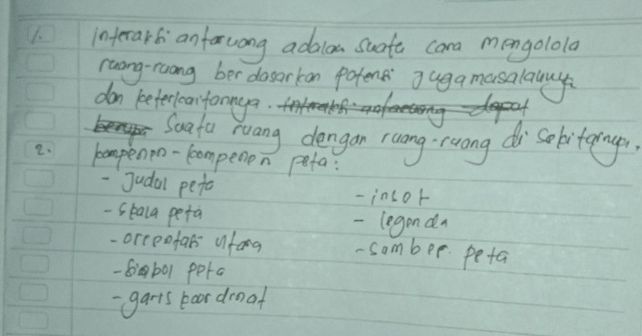 1. interaksi antar uang adalah suatu cara mengolola
ruang-ruang berdasarkan potensi juga masalahnya
dan keterkaitannya. interaksi antar uang dapat
berupa Suatu ruang dengan ruang-ruang di sekitarnya.
2. komponen-komponen peta:
- Judul peta
- Skala peta
- orientasi utara
- Simbol peta
- garis koordinat
- insot
- legenda
- sumber peta